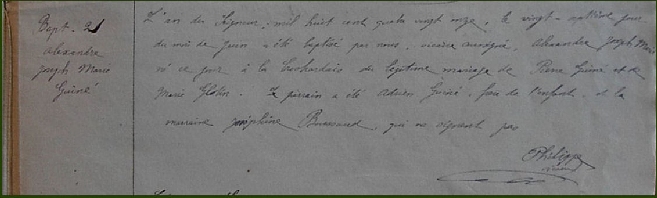 Bapt. 21
Alexandre
Joseph Marie
Guiné
L'an du Seigneur, mil huit cent quatre vingt onze, le vingt-septième jour
du mois de Juin a été baptisé par nous, vicaire soussigné, Alexandre Joseph Marie
né ce jour à la du légitime mariage de Pierre Guiné et de
Marie Glotin. Le parrain a été Adrien Guiné, frère de l'enfant, et la
marraine Joséphine Brossaud, qui ne signent pas
Philippe